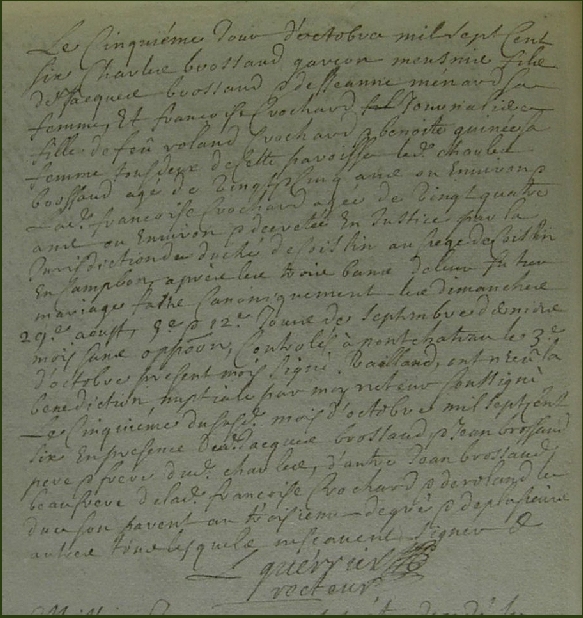 Le Cinquiéme Jour d'octobre mil sept Cent
six Charles brossaud garcon meusnier fils
de Jacques brossaud & de Jeanne ménard sa
femme, Et francoise Crochard domestique
fille de feû roland Crochard & benoiste quinée sa
femme tous deux de cette paroisse led. charles
brossaud agé de Vingt & Cinq ans ou Environ &
lad. francoise Crochard agée de Vingt quatre
ans ou Environ & decretés En Justice par la
Jurisdiction du duché de Coislin au siege de Coislin
En Campbon, apres les trois bans de leur futur
mariage faits Canoniquement les dimanches
29e aoust, 5e & 12e Jours de septembre dernier
mois sans opposon, Controlés à pontchateau le 3e
d'octobre present mois signé Vailland, ont reçû la
benediction nuptiale par moy recteur soussigné
le Cinquiéme dususd. mois d'octobre mil sept cent
six En presence de Jacques brossaud & Jean brossaud
pere & frere dud. charles, d'autre Jean brossaud
beaufrere de lad. francoise Crochard & de roland le
duc son parent au troisieme degré & de plusieurs
autres tous lesquels ne scavent signer &
L guérrier
recteur